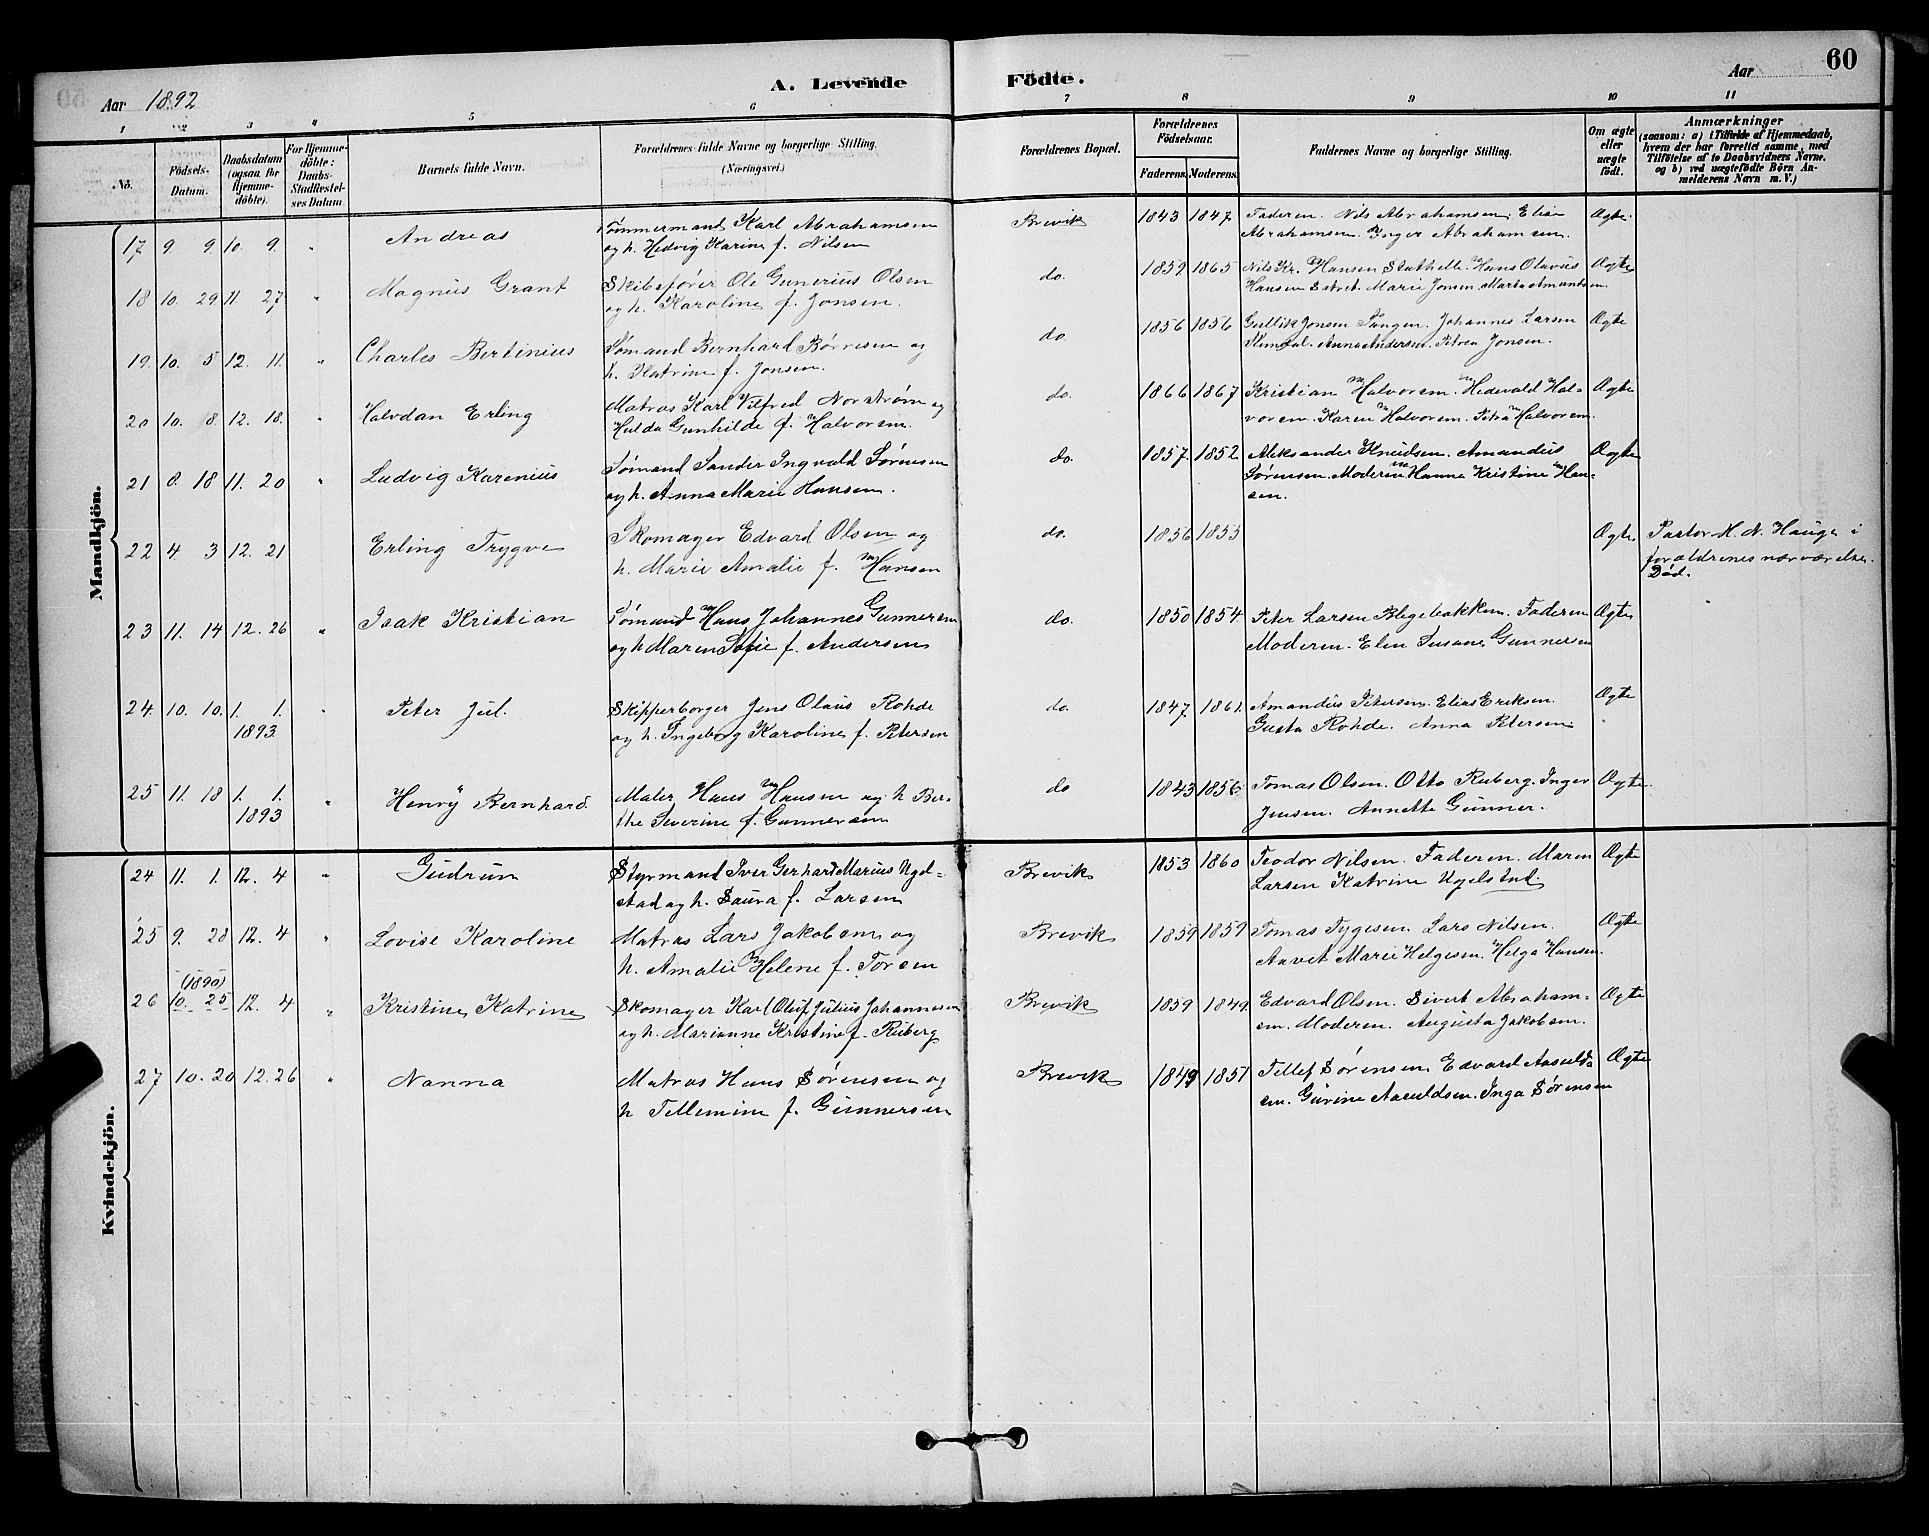 60
Aar 1892
A. Levende Födte.
Aar
1 2 3 4 5 6 7 8 9 10 11
No.
Födsels-Datum.
Daabsdatum (ogsaa for Hjemme-döbte).
For Hjemme-döbte: Daabs-Stadfæstel-ses Datum
Barnets fulde Navn.
Forældrenes fulde Navne og borgerlige Stilling. (Næringsvei.)
Forældrenes Bopæl.
Forældrenes Födselsaar.
Faderens. Moderens.
Faddernes Navne og borgerlige Stilling.
Om ægte eller uægte födt.
Anmærkninger
(saasom: a) i Tilfælde af Hjemmedaab,
hvem der har forrettet samme, med
Tilföielse af to Daabsvidners Navne.
og b) ved uægtefödte Börn An-
melderens Navn m. V.)
Mandkjön.
17 9. 9. 10. 9. " Andreas Tømmermand Karl Abrahamsen Brevik 1843 1847 Faderen. Nils Abrahamsen. Elise Ægte.
og h. Hedvig Karine f. Nilsen Abrahamsen. Inger Abrahamsen.
18 10. 29 11. 27 " Magnus Grant Skibsfører Ole Gunerius Olsen do. 1859. 1865 Nils Kr. Hansen Stathelle. Hans Olavus Ægte
og h. Karoline f. Jonsen. Hansen Marie Jonsen. Marta Amundsen.
19. 10. 5 12. 11. " Charles Bertinius Sømand Bernhard Børresen og do. 1856 1856 Gullik Jonsen Tangen. Johannes Larsen Ægte
h. Katrine f. Jonsen. Anna Andersen. Petrea Jonsen.
20 10. 8. 12. 18. " Halvdan Erling Matros Karl Vilfred Norstrøm og do. 1866 1867 Kristian Halvorsen. Hedevald Hal- Ægte
Hulda Gunhilde f. Halvorsen. vorsen. Karen Halvorsen. Petra Halvorsen.
21 8. 18 11. 20 " Ludvig Karenius Sømand Sander Ingvald Sørensen do. 1857. 1852. Aleksander Knudsen. Amandus Ægte
og h. Anna Marie Hansen. Sørensen. Moderen. Hanna Kristine Han-
sen.
22 4. 3 12. 21 Erling Trygve Skomager Edvard Olsen og do. 1856 1853 Ægte Pastor H. N. Hauge i
h. Marie Amalie f. Hansen forældrenes nærværelse.
Død.
23 11. 14 12. 26 " Isak Kristian Sømand Hans Johannes Gunnersen do. 1850 1854 Peter Larsen Blegebakken. Faderen Ægte
og h Maren Sofie f. Andersen Moderen. Elen Susane Gunnersen
24. 10. 10. 1. 1. " Peter Jul. Skipperborger Jens Olaus Rohde do. 1847. 1861. Amandus Petersen. Elias Eriksen. Ægte
1893. og h. Ingeborg Karoline f. Petersen Gusta Rohde. Anna Petersen.
25 11. 18 1. 1. " Henry Bernhard. Maler Hans Hansen og h Ber- do 1843 1856 Tomas Olsen. Otto Ruberg. Inger Ægte.
1893 the Severine f. Gunnersen Jensen. Annette Gunner.
Kvindekjön.
24 11. 1. 12. 4 " Gudrun Styrmand Iver Gerhard Marius Ugel- Brevik 1853 1860 Teodor Nilsen. Faderen. Maren Ægte
stad og h. Laura f. Larsen Larsen Katrine Ugelstad.
25 9. 28 12. 4 " Lovise Karoline Matros Lars Jakobsen og Brevik 1859 1859 Tomas Tygesen. Lars Nilsen. Ægte
h. Amalie Helene f. Torsen Marie Helgesen. Helga Hansen.
(1890)
26 10. 25 12. 4 " Kristine Katrine Skomager Karl Oluf Julius Johannesen Brevik 1859 1849. Edvard Olsen. Sivert Abraham- Ægte
og h. Marianne Kristine f. Ruberg sen. Moderen. Augusta Jakobsen.
27 10. 20 12. 26 " Nanna Matros Hans Sørensen og Brevik 1849 1851 Tellef Sørensen Edvard Aasulds- Ægte
h Tellemine f. Gunnersen sen. Gurine Aasuldsen. Inga Sørensen